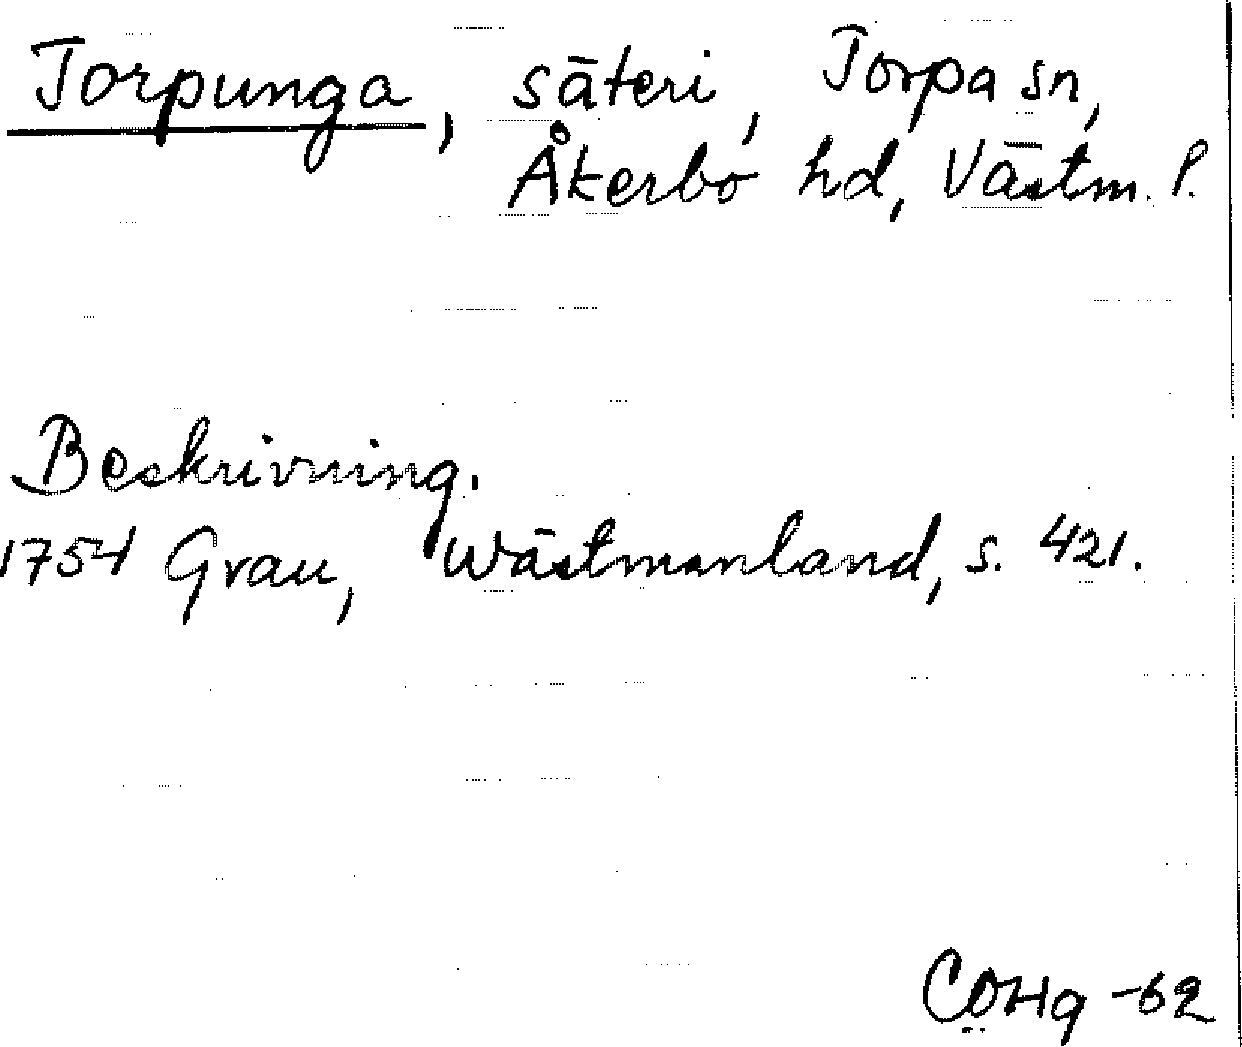 Torpunga, säteri, Torpa sn,
Åkerbo hd, Västm. l.
Beskrivning.
1754 Grau, Wästmanland, s. 421.
COHg -62